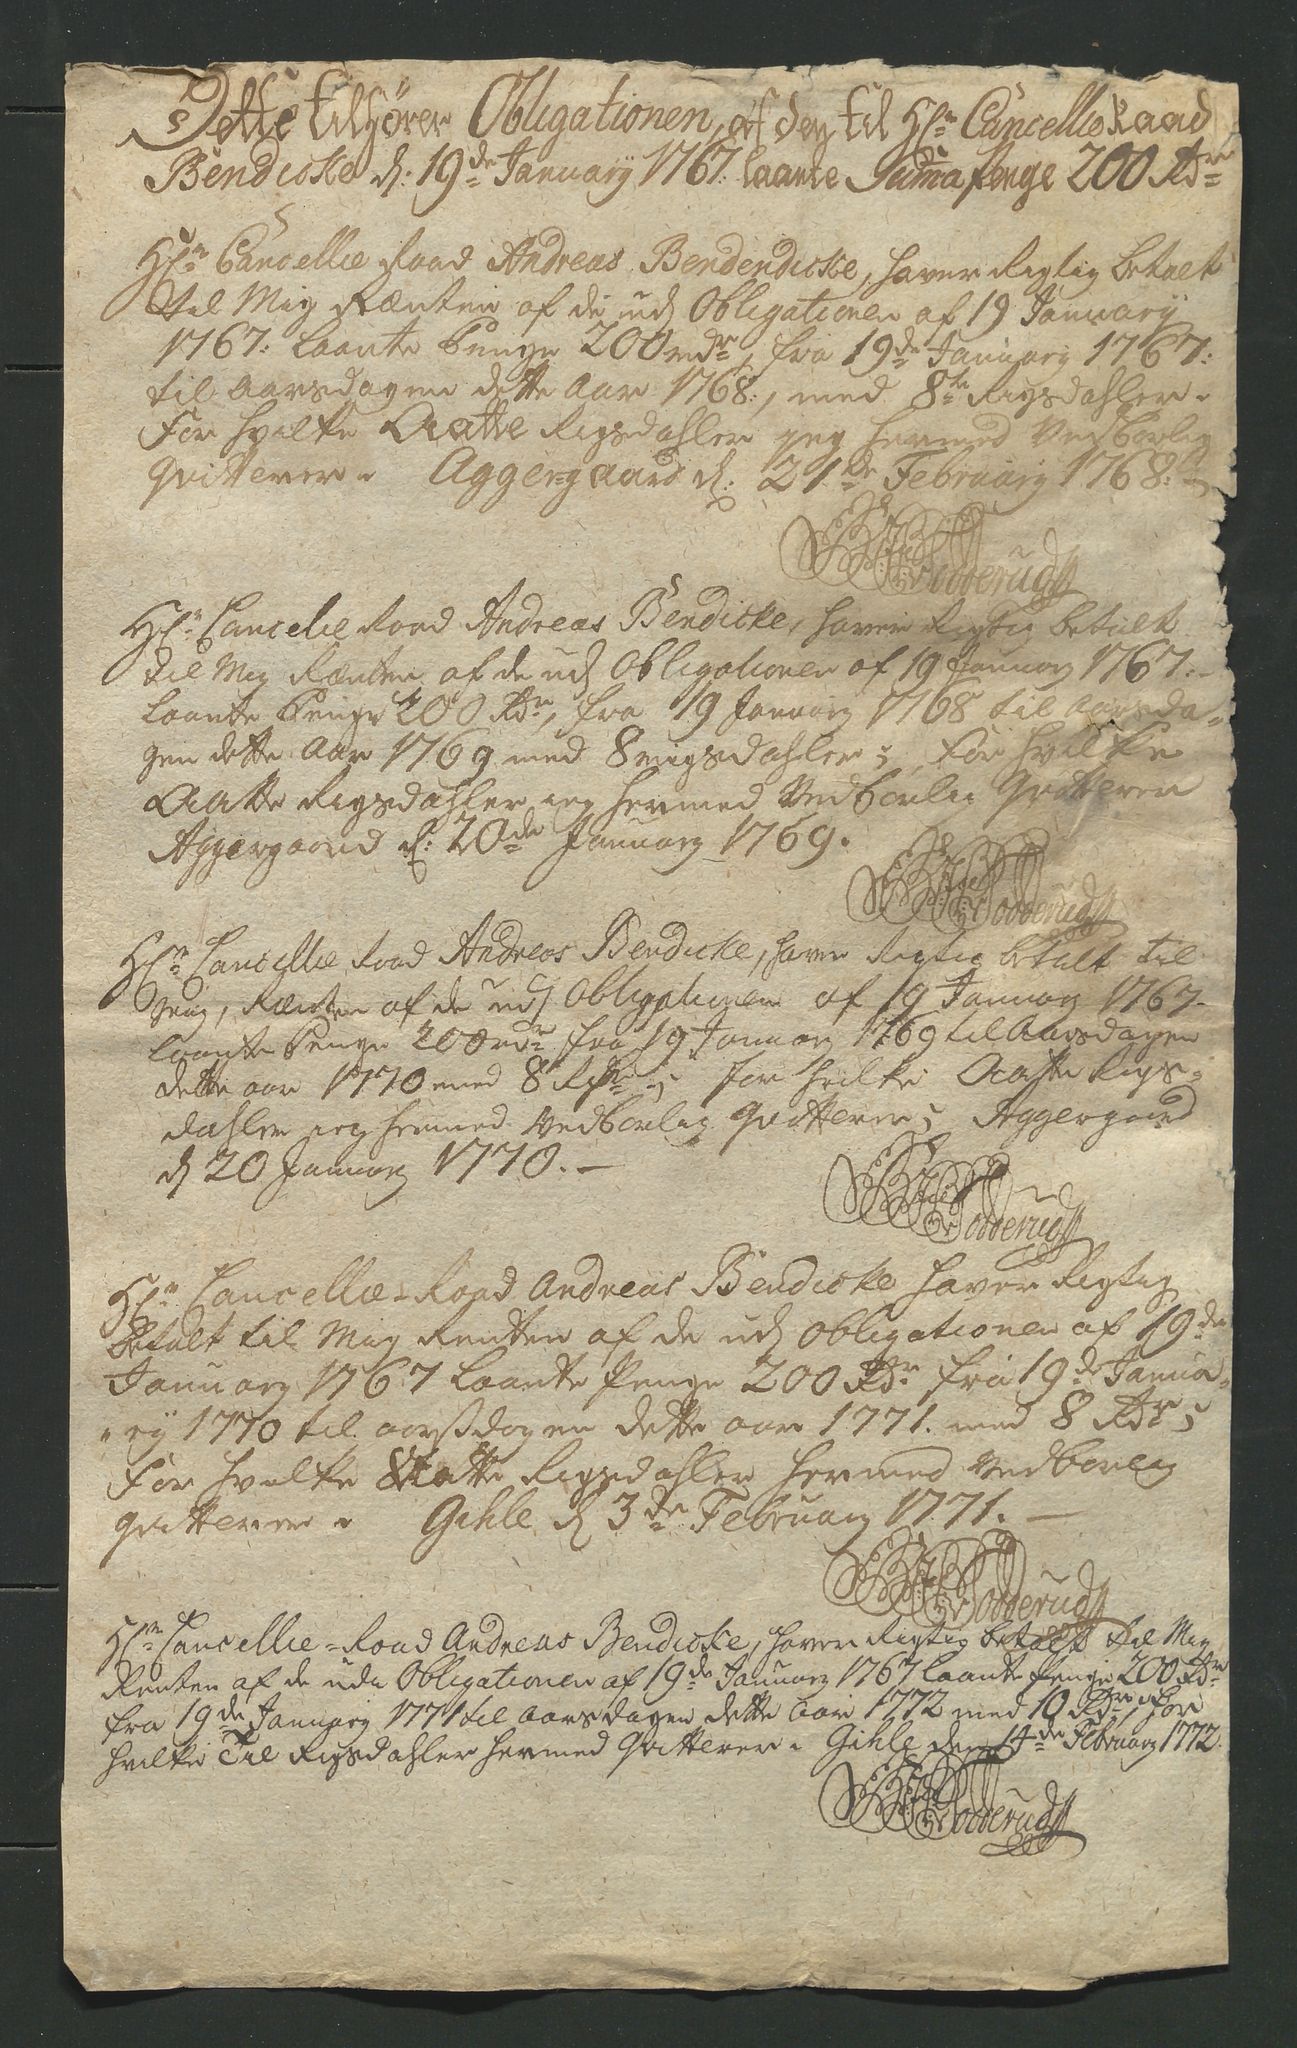 Dette tilhörer Obligationen, af den til Hr. Cancellie Raad
Bendicke d: 19de Januarÿ 1767. laante Suma Penge 200 Rdr
Hr. Cancellie Raad Andreas Bendendicke, haver Rigtig betalt
til Mig Rænten af de udj Obligationen af 19 Januarÿ
1767: laante Penge 200 rdr, fra 19de Januarj 1767:
til aarsdagen dette Aar 1768:, med 8te Rigsdahler.
For hvilke Aatte Rigsdahler jeg hermed Vedbørlig
qvitterer. Aggergaard d: 21de Februarj 1768:
Bodderud
Hr. Cancelie Raad Andreas Bendicke, haver Rigtig betalt
til Mig Rænten af de udj Obligationen af 19 Januarj 1767:
laante Penge 200 Rdr, fra 19 Januarj 1768 til aarsda-
gen dette Aar 1769 med 8 rigsdahler; for hvilke
Aatte Rigsdahler jeg hermed Vedbørlig Qvitterer
Aggergaard d: 20de Januarj 1769.
Bodderud
Hr. Cancellie Raad Andreas Bendicke, haver Rigtig betalt til
mig, Rænten af de udj Obligationen af 19 Januarj 1767.
laante Penge 200 rdr fra 19 Januarj 1769 til Aarsdagen
dette aar 1770 med 8 Rdr; for hvilke Aatte Rigs-
dahler jeg hermed Vedbørlig Qvitterer; Aggergaard
d 20 Januarj 1770.
Bodderud
Hr. Cancellie-Raad Andreas Bendicke haver Rigtig
betalt til Mig Rentten af de udj Obligationen af 19de
Januarj 1767 laante Penge 200 Rdr fra 19de Janua-
rÿ 1770 til aarsdagen dette aar 1771. med 8 Rdr;
For hvilke Aatte Rigsdahler hermed Vedbørlig
qvitterer. Gihle d 3de Februarj 1771.
Bodderud
Hr. Cancellie-Raad Andreas Bendicke, haver Rigtig betalt til Mig
Renten af de udi Obligationen af 19de Januarj 1767 laante Penge 200 Rdr
fra 19de Januarj 1771 til aarsdagen dette aar 1772 med 10 Rdr, for
hvilke Tie Rigsdahler hermed Qvitterer. Gihle den 14de Februarj 1772.
Bodderud